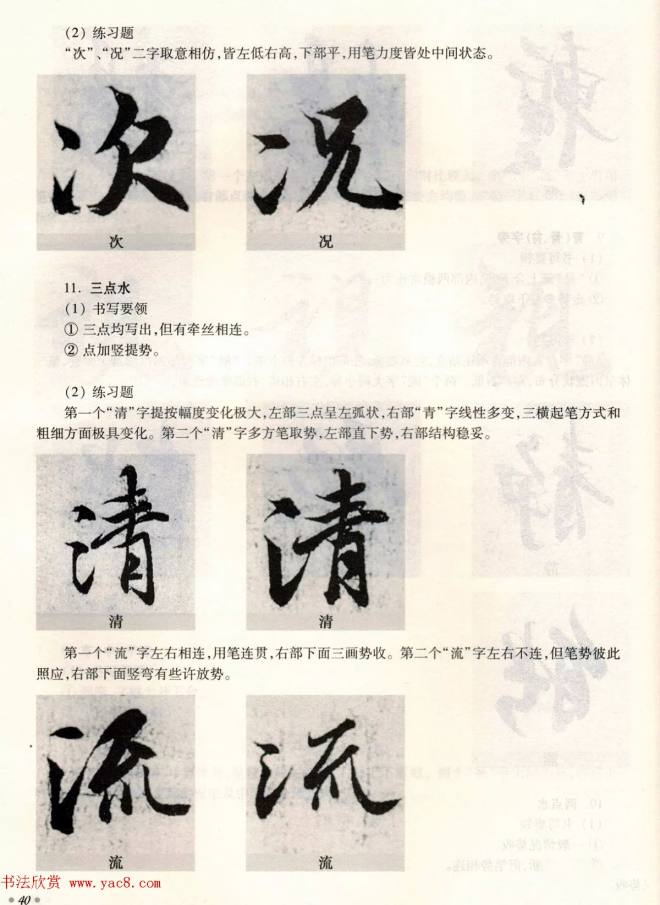 (2) 练习题
“次”、“况”二字取意相仿，皆左低右高，下部平，用笔力度皆处中间状态。
次 况
次 况
11. 三点水
(1) 书写要领
① 三点均写出，但有牵丝相连。
② 点加竖提势。
(2) 练习题
第一个“清”字提按幅度变化极大，左部三点呈左弧状，右部“青”字线性多变，三横起笔方式和
粗细方面极具变化。第二个“清”字多方笔取势，左部直下势，右部结构稳妥。
清 清
清 清
第一个“流”字左右相连，用笔连贯，右部下面三画势收。第二个“流”字左右不连，但笔势彼此
照应，右部下面竖弯有些许放势。
流 流
流 流
书法欣赏 www.yac8.com
• 40 •